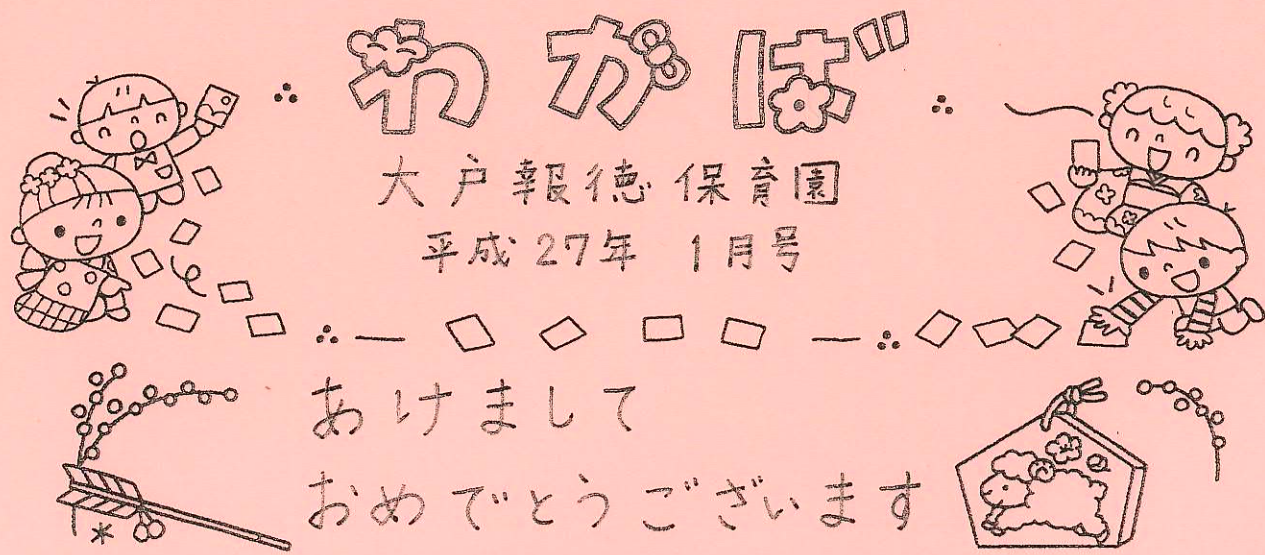 わかば
大戸報徳保育園
平成27年 1月号
あけまして
おめでとうございます